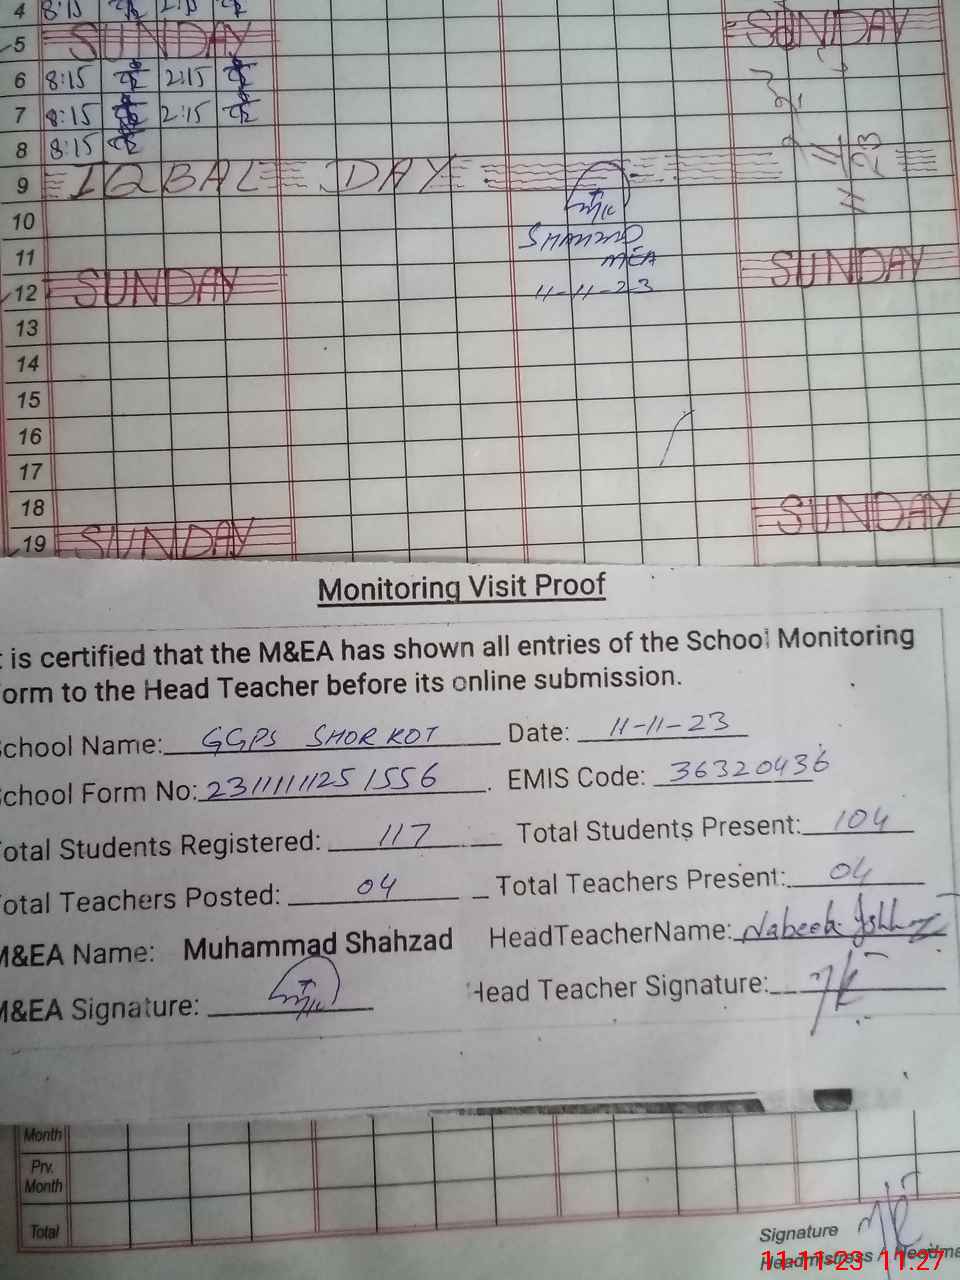 4 8:15 2:15
5 SUNDAY SUNDAY
6 8:15 2:15
7 8:15 2:15
8 8:15
11/11/23
9 IQBAL DAY
10
SHAHZAD
11 MEA
12 SUNDAY 11-11-23 SUNDAY
13
14
15
16
17
18 SUNDAY
19 SUNDAY
Monitoring Visit Proof
t is certified that the M&EA has shown all entries of the School Monitoring
orm to the Head Teacher before its online submission.
chool Name: GGPS SHORKOT Date: 11-11-23
chool Form No: 2311111251556 EMIS Code: 36320436
otal Students Registered: 117 Total Students Present: 104
otal Teachers Posted: 04 Total Teachers Present: 04
M&EA Name: Muhammad Shahzad HeadTeacherName: Nabeela
M&EA Signature: Head Teacher Signature:
Month
Prv. Month
Total
Signature
Headmistress / Headma
11-11-23 11.27